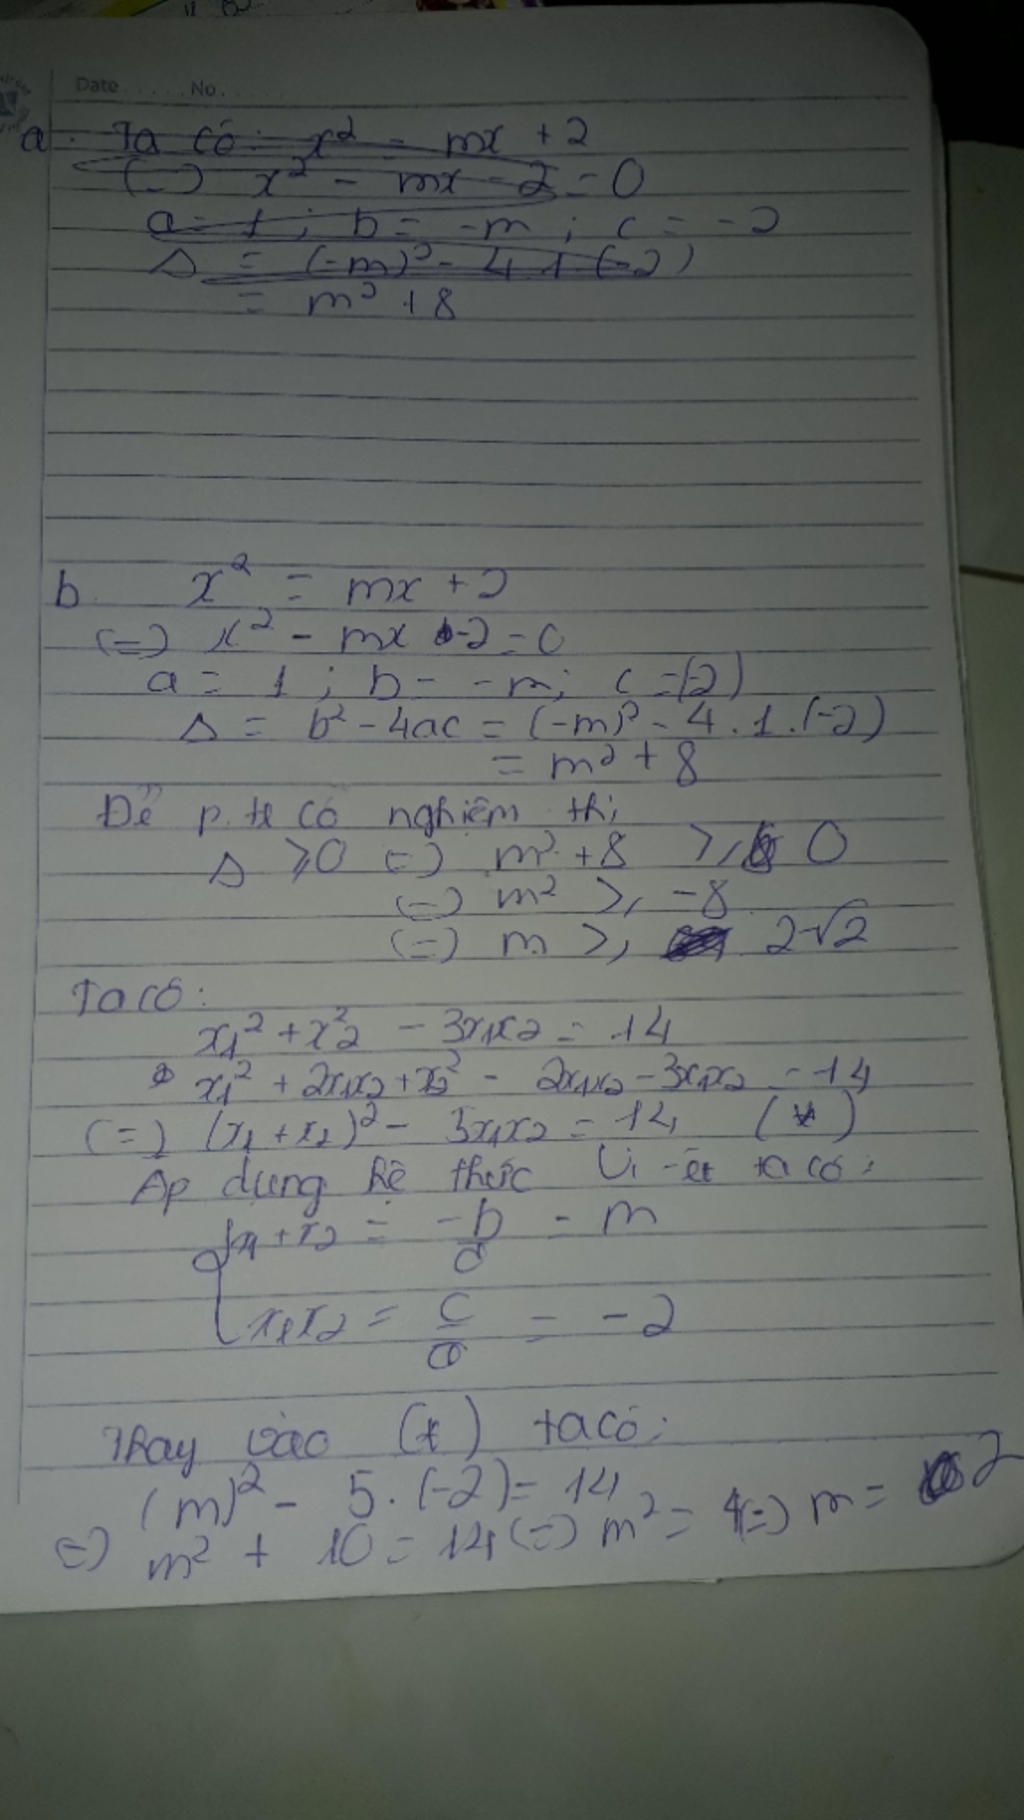 Date......No.....
a. Ta có: x² - mx + 2
(=) x² - mx - 2 = 0
a = 1; b = -m; c = -2
Δ = (-m)² - 4.1(-2)
= m² + 8
b. x² = mx + 2
(=) x² - mx -2 = 0
a = 1; b = -m; c = (-2)
Δ = b² - 4ac = (-m)² - 4.1.(-2)
= m² + 8
Để p.tr có nghiệm thì
Δ ⩾ 0 (=) m² + 8 ⩾ 0
(=) m² ⩾ -8
(=) m ⩾ 2√2
Ta có:
x₁² + x₂² - 3x₁x₂ = 14
x₁² + 2x₁x₂ + x₂² - 2x₁x₂ - 3x₁x₂ = 14
(=) (x₁ + x₂)² - 5x₁x₂ = 14 (*)
Áp dụng hệ thức Vi-ét ta có:
{x₁ + x₂ = -b/a = m
x₁x₂ = c/a = -2
Thay vào (*) ta có:
(m)² - 5.(-2) = 14
=) m² + 10 = 14 (=) m² = 4 (=) m = 2